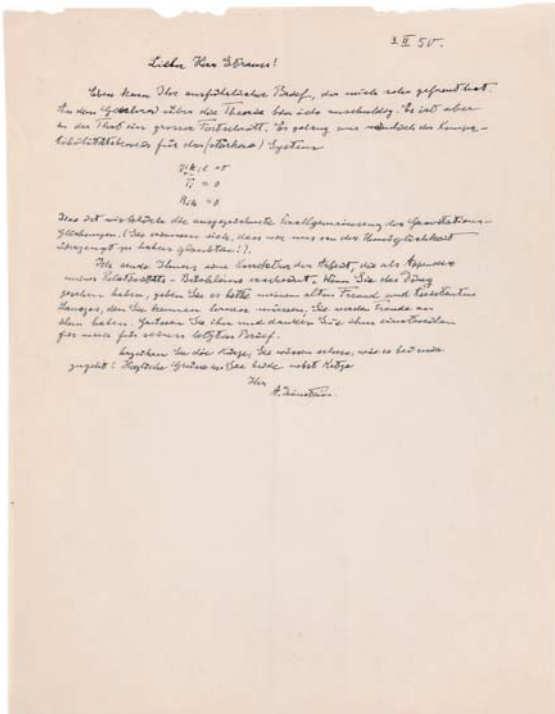 3. II 50.
Lieber Herr Strauss!
Eben kam Ihr ausführlicher Brief, der mich sehr gefreut hat.
An dem über die Theorie bin ich unschuldig. Es ist aber
in der That ein grosser Fortschritt. Es gelang mir der Kompa-
tibilitätsbeweis für das (stärkere) System
gik;l = 0
Γi = 0
Rik = 0
Dies ist wirklich die ausgezeichnete Verallgemeinerung der Gravitations-
gleichungen. (Sie erinnern sich, dass wir uns von der Unmöglichkeit
überzeugt zu haben glaubten!).
Ich sende Ihnen eine Korrektur der Arbeit, die als Appendix
meines Relativitäts-Büchleins erscheint. Wenn Sie das Ding
gesehen haben, geben Sie es bitte meinem alten Freund und
den Sie kennen lernen müssen. Sie werden Freude an
ihm haben. Grüssen Sie ihn und danken Sie ihm einstweilen
für seinen letzten Brief.
Verzeihen Sie die Kürze, Sie wissen schon, wie es bei mir
zugeht! Herzliche Grüsse an Sie beide nebst Katze
Ihr
A. Einstein.